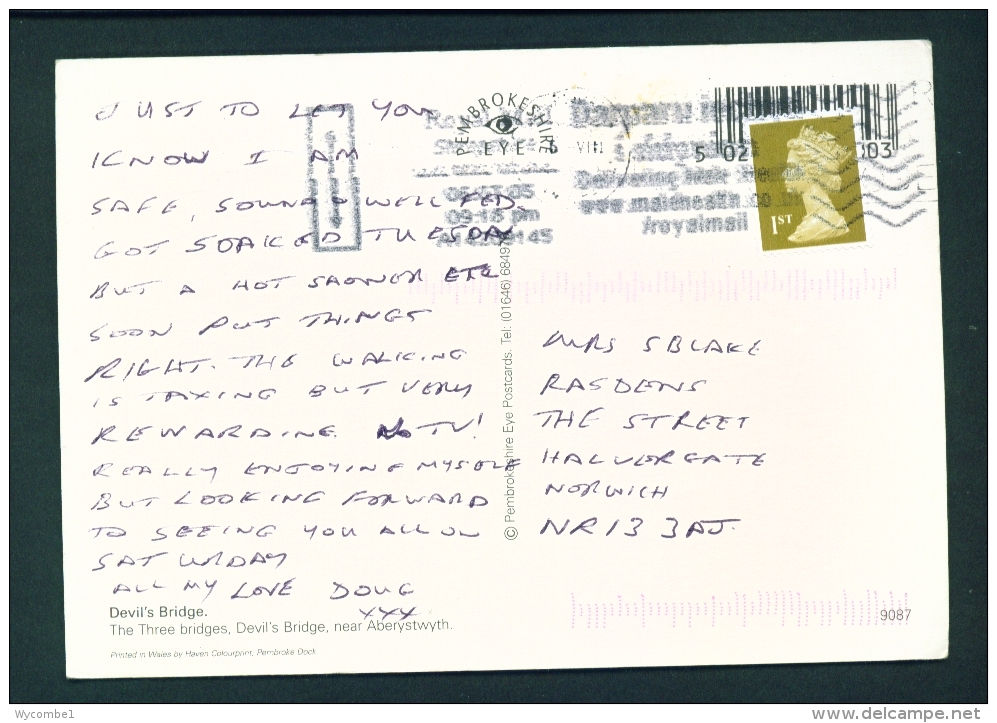 JUST TO LET YOU
KNOW I AM
SAFE, SOUND & WELL FED.
GOT SOAKED TUESDAY
BUT A HOT SHOWER ETC
SOON PUT THINGS
RIGHT. THE WALKING
IS TAXING BUT VERY
REWARDING. NO TV!
REALLY ENJOYING MYSELF
BUT LOOKING FORWARD
TO SEEING YOU ALL ON
SATURDAY
ALL MY LOVE DOUG
XXX
Devil's Bridge.
The Three bridges, Devil's Bridge, near Aberystwyth.
Printed in Wales by Haven Colourprint, Pembroke Dock.
© Pembrokeshire Eye Postcards. Tel: (01646) 68497
PEMBROKESHIRE
EYE
VIII
09:18 pm
www.
/royalmail
5 02
003
1ST
MRS S BLAKE
RASDENS
THE STREET
HALVERGATE
NORWICH
NR13 3AJ.
9087
Wycombe1
delcampe.net